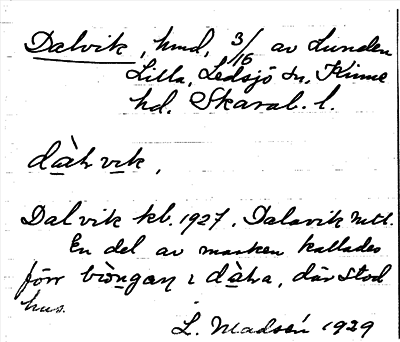 Dalvik, hmd, 3/16 av Lunden
Lilla, Ledsjö sn, Kinne
hd. Skarab. l.
dàlvik,
Dalvik kb. 1927, Dalavik mtl.
En del av marken kallades
förr i dàlra, där stod
hus.
L. Madsén 1929